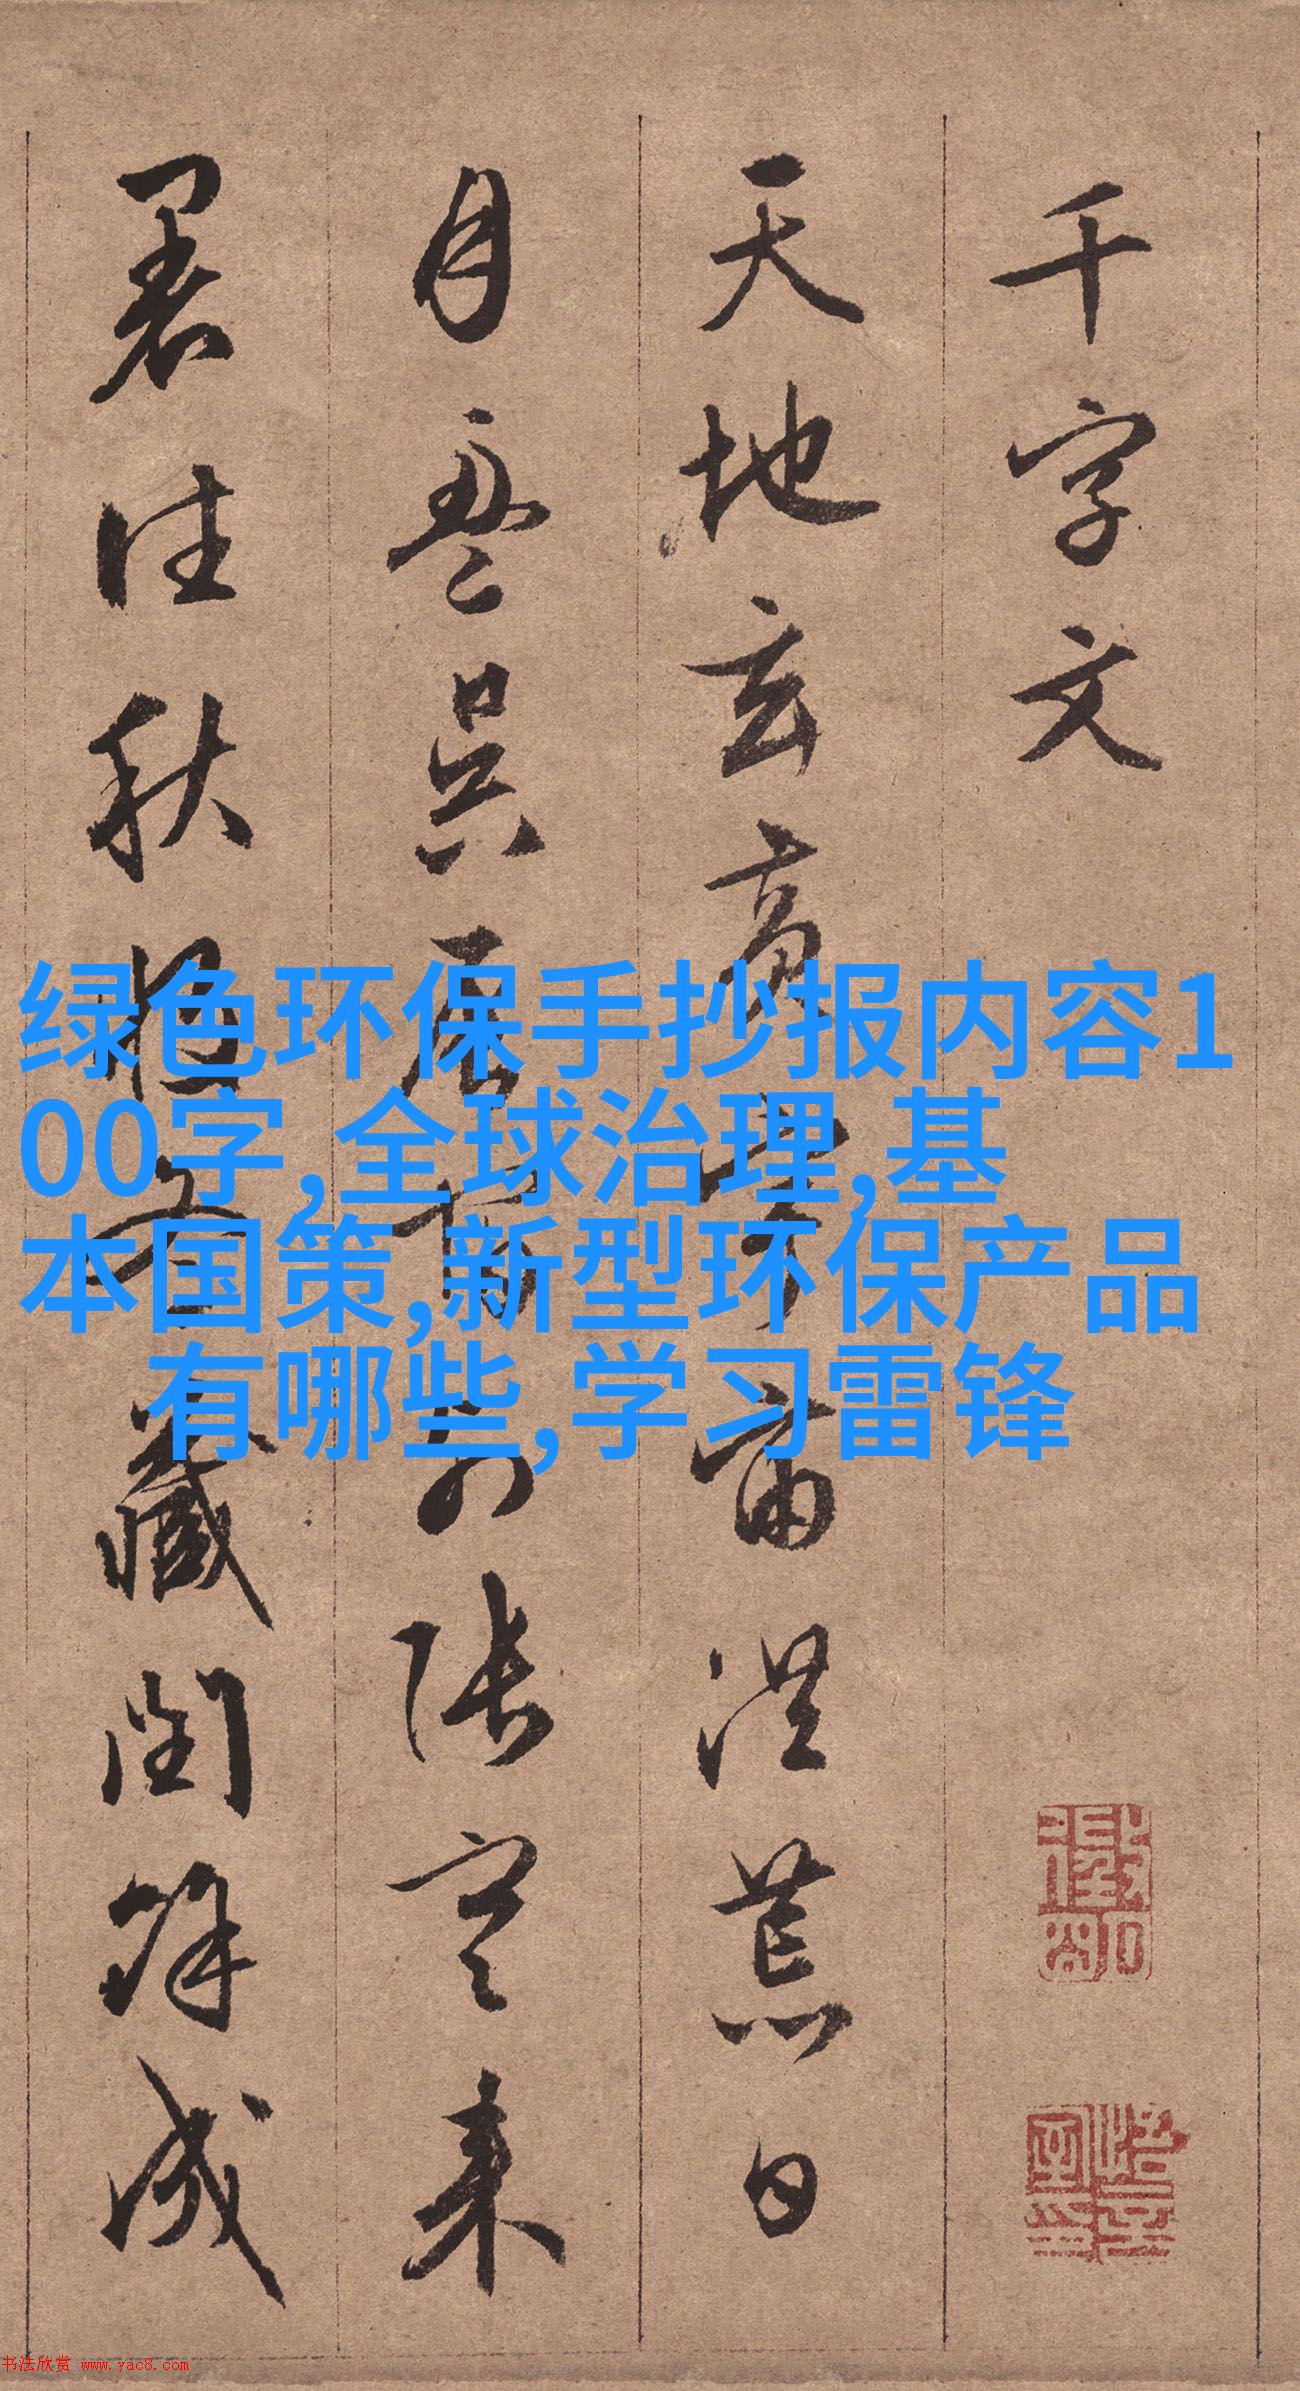 千字文
天地玄黄宇宙洪荒日
月盈昃辰宿列張寒来
暑往秋收冬藏閏餘成
绿色环保手抄报内容1
00字,全球治理,基
本国策,新型环保产品
有哪些,学习雷锋
书法欣赏 www.yac8.com